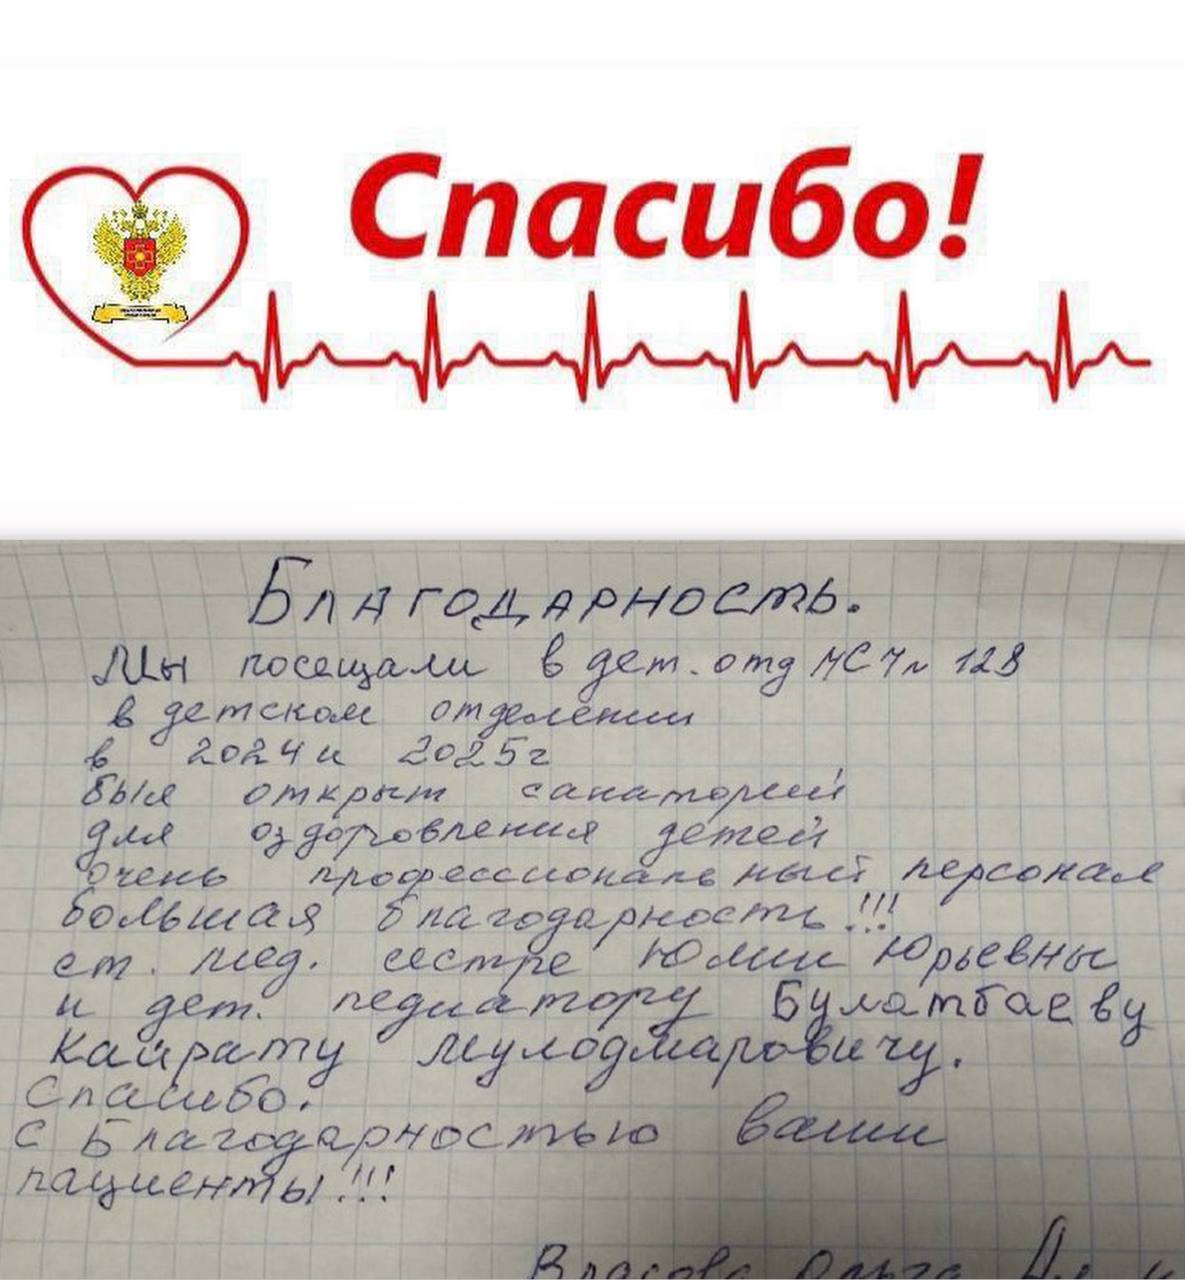 Спасибо!
Благодарность.
Мы посещали в дет. отд МСЧ № 128
в детском отделении
в 2024 и 2025 г
был открыт санаторий
для оздоровления детей
очень профессиональный персонал
большая благодарность!!!
ст. мед. сестре Юлии Юрьевны
и дет. педиатору Булатбаеву
Кайрату Мулодмаровичу.
Спасибо.
с Благодарностью ваши
пациенты!!!
Власова Ольга